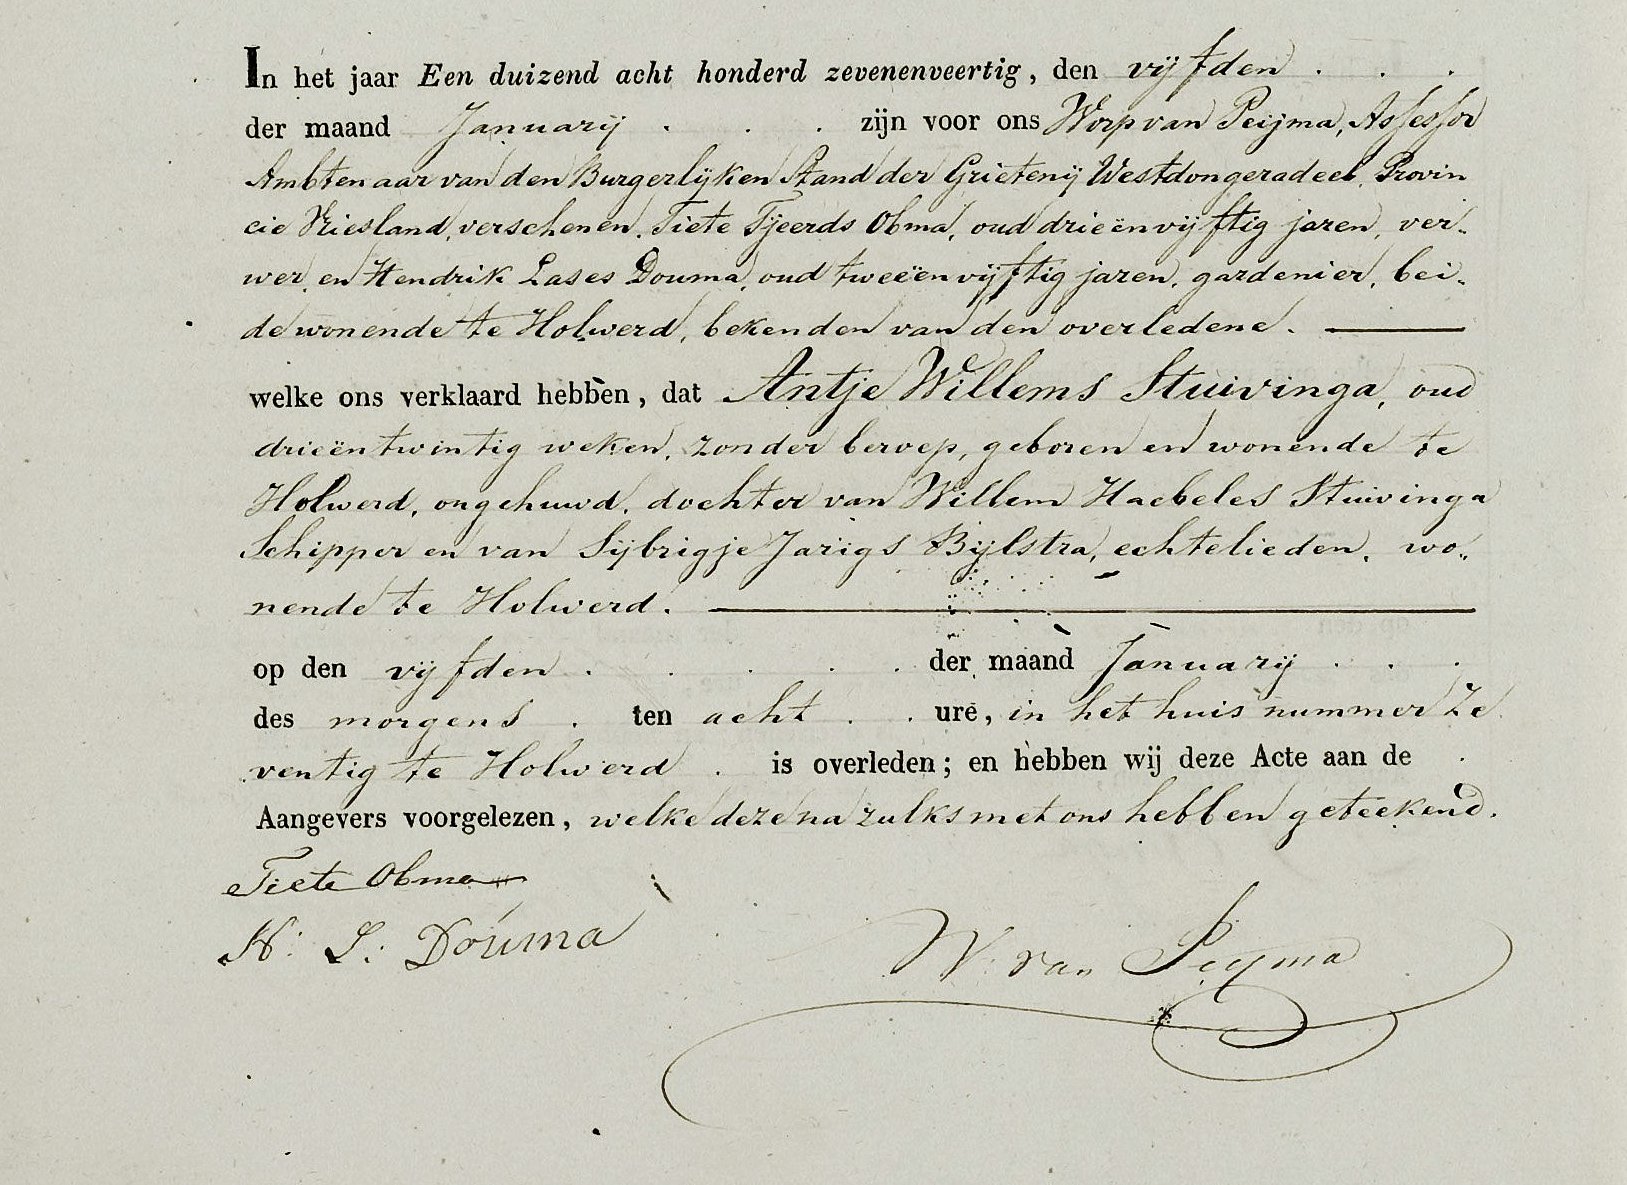 In het jaar Een duizend acht honderd zevenenveertig, den vijfden . . .
der maand Januarij . . . zijn voor ons Worp van Peijma, Assessor
Ambtenaar van den Burgerlijken Stand der Grietenij Westdongeradeel, Provin
cie Vriesland, verschenen, Tiete Tjeerds Obma, oud drieënvijftig jaren, ver„
wer, en Hendrik Lases Douma, oud tweeënvijftig jaren, gardenier, bei„
de wonende te Holwerd, bekenden van den overledene.
welke ons verklaard hebben, dat Antje Willems Stuivinga, oud
drieëntwintig weken, zonder beroep, geboren en wonende te
Holwerd, ongehuwd, dochter van Willem Haebeles Stuivinga
Schipper en van Sijbrigje Jarigs Bijlstra, echtelieden, wo„
nende te Holwerd.
op den vijfden . . . . der maand Januarij . . .
des morgens . ten acht . . ure, in het huis nummer Ze
ventig te Holwerd . is overleden; en hebben wij deze Acte aan de .
Aangevers voorgelezen, welke deze na zulks met ons hebben geteekend.
Tiete Obma
H: L: Douma
W. van Peyma